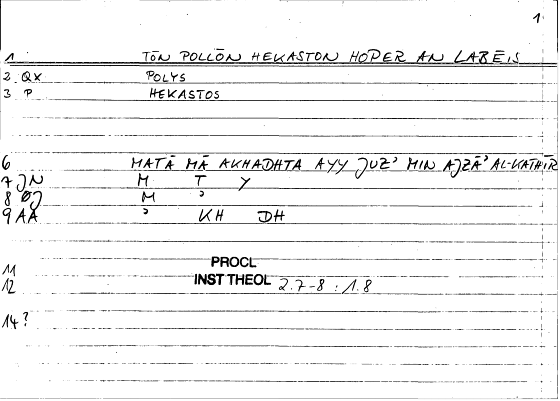 1
1 TŌN POLLŌN HEKASTON HOPER AN LABĒIS
2 QX POLYS
3 P HEKASTOS
6 MATĀ MĀ AKHADHTA AYY JUZ' MIN AJZĀ' AL-KATHĪR
7 JN M T Y
8 ØJ M '
9 AA ' KH DH
11 PROCL
12 INST THEOL 2.7-8 : 1.8
14 ?